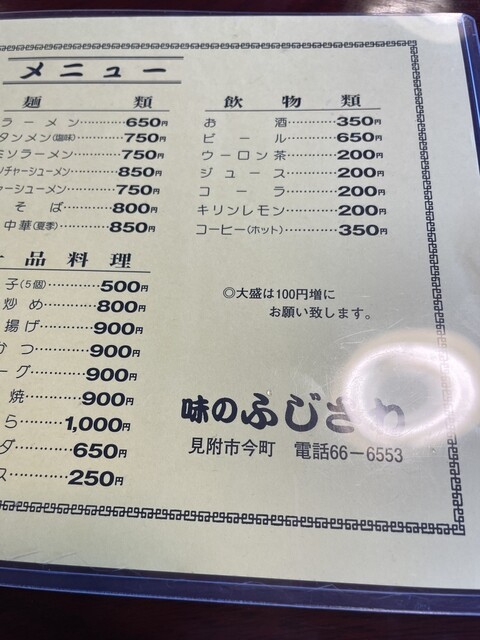 メニュー
麺類
ラーメン…………650円
タンメン(塩味)…………750円
ミソラーメン…………750円
ンチャーシューメン…………850円
ャーシューメン…………750円
そば…………800円
中華(夏季)…………850円
品料理
子(5個)…………500円
炒め…………800円
揚げ…………900円
かつ…………900円
ーグ…………900円
焼…………900円
ら…………1,000円
ダ…………650円
ス…………250円
飲物類
お酒…………350円
ビール…………650円
ウーロン茶…………200円
ジュース…………200円
コーラ…………200円
キリンレモン…………200円
コーヒー(ホット)…………350円
◎大盛は100円増に
お願い致します。
味のふじさわ
見附市今町 電話66-6553